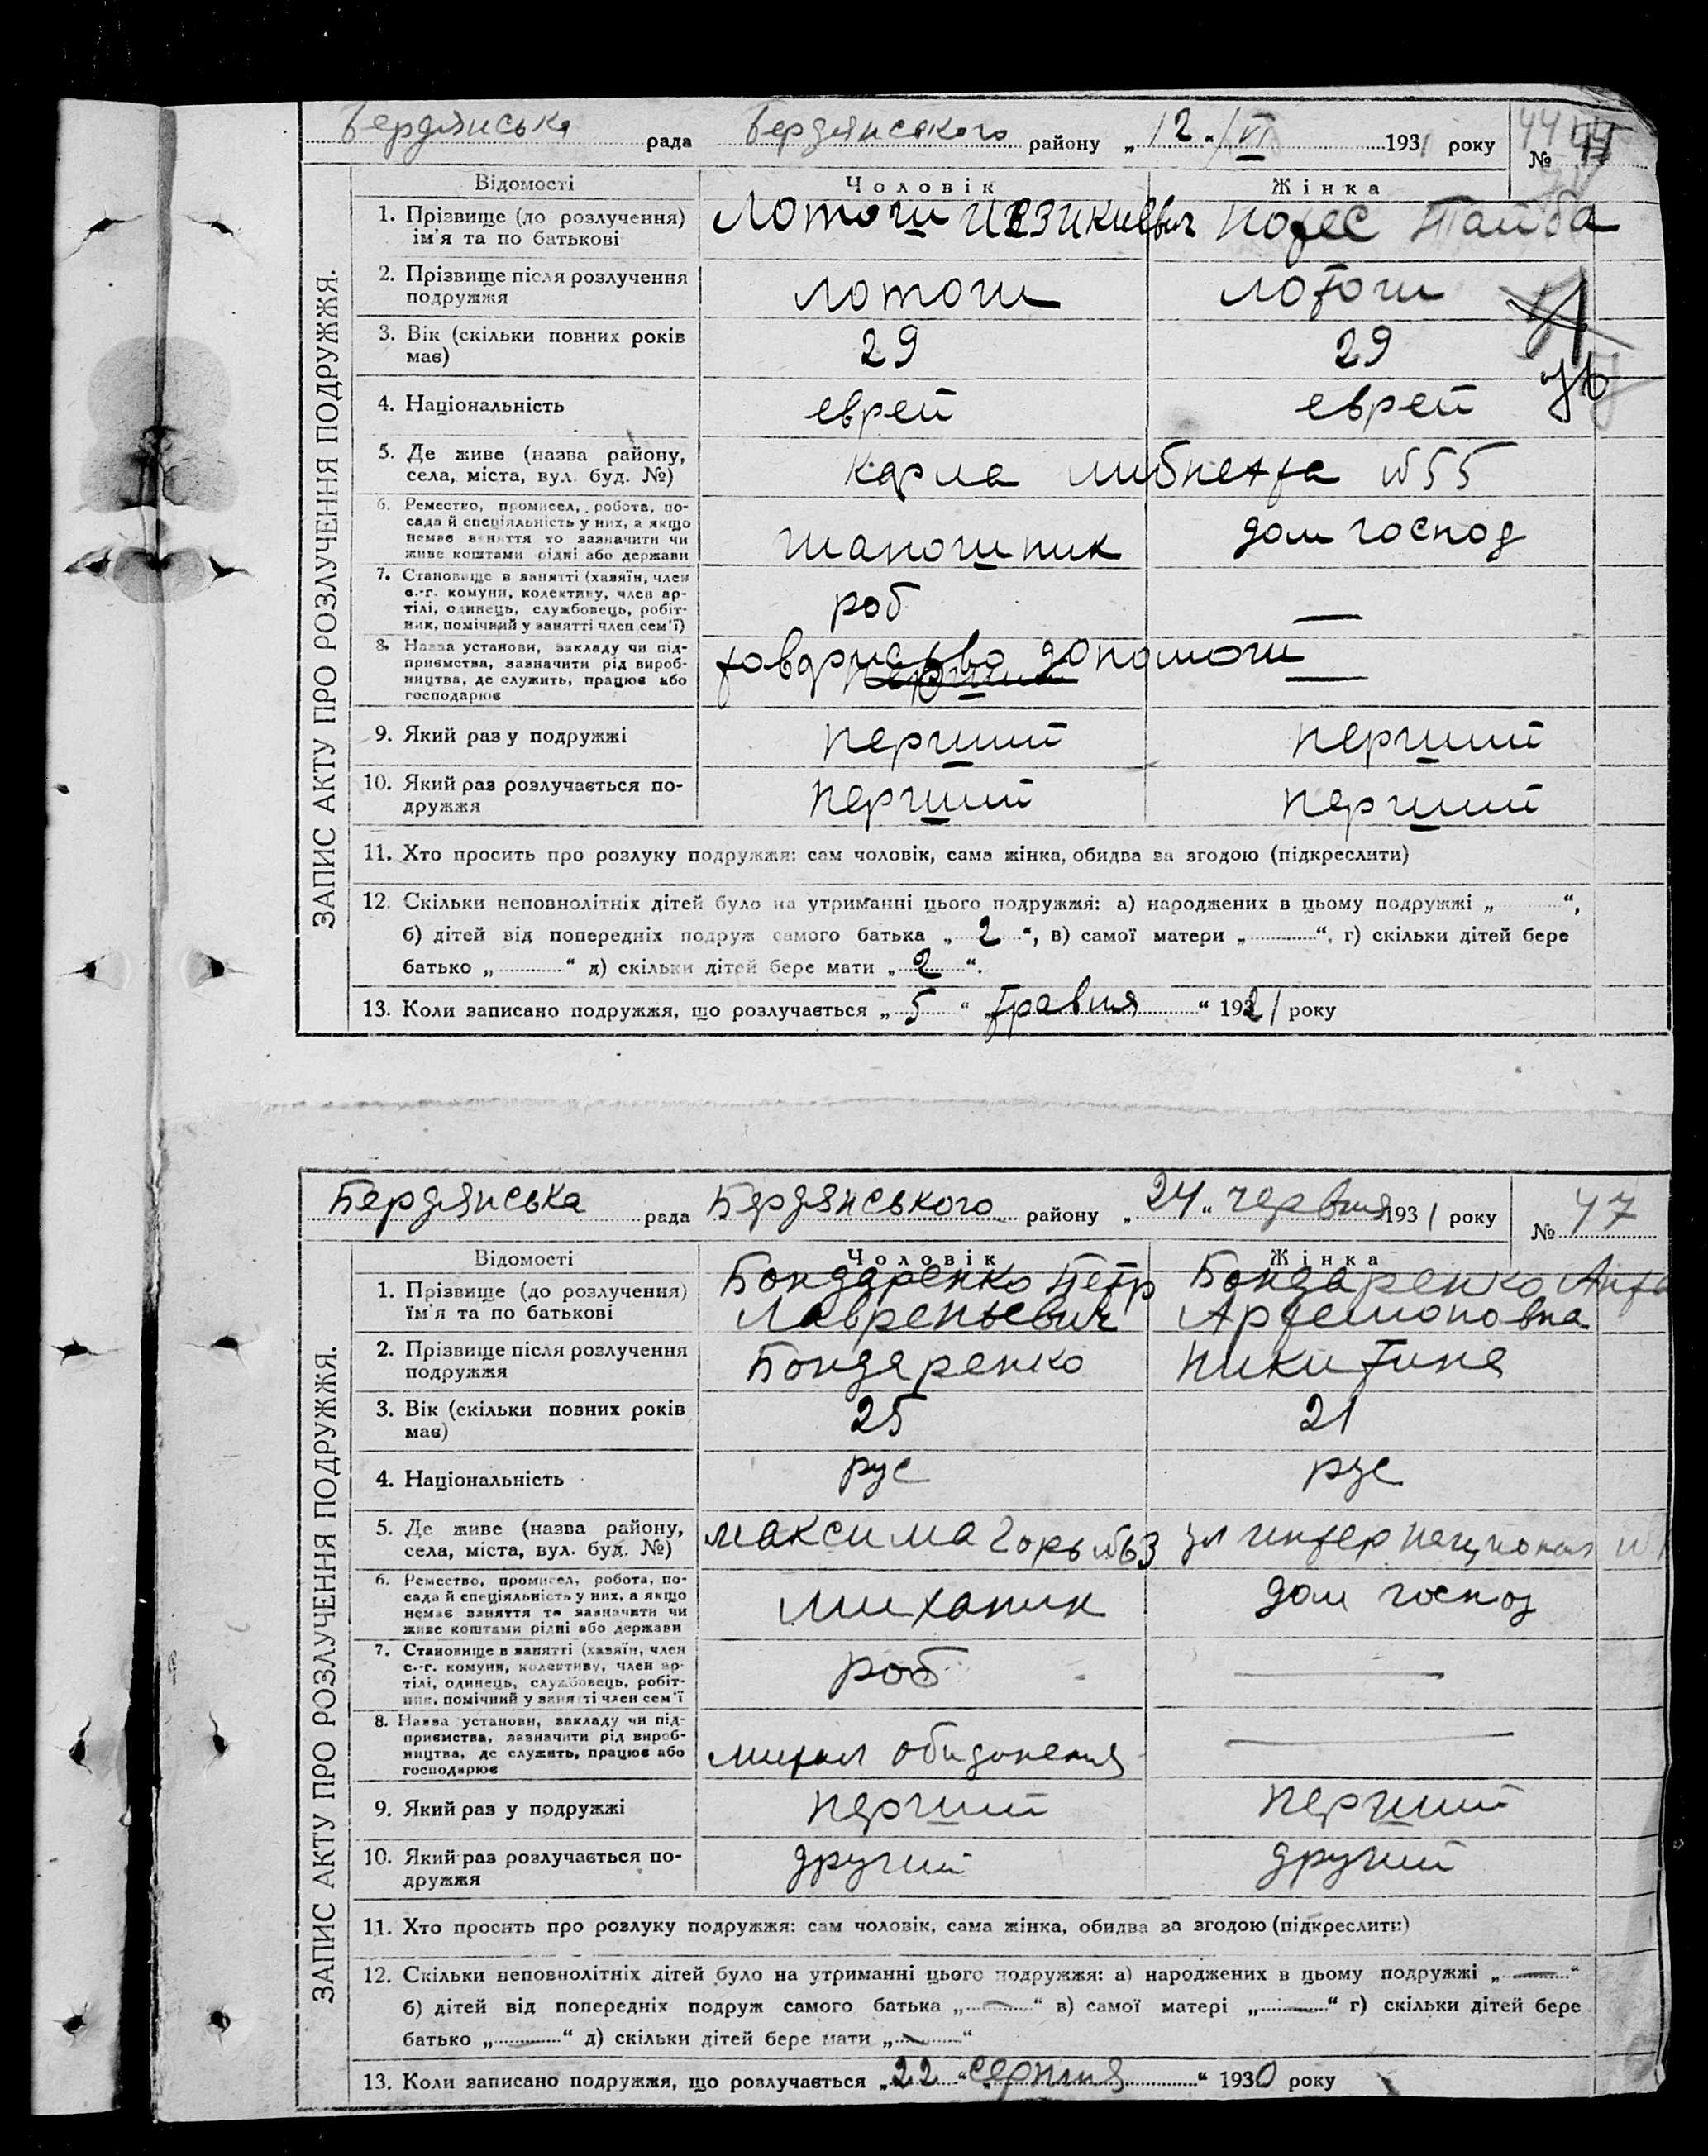 ЗАПИС АКТУ ПРО РОЗЛУЧЕННЯ ПОДРУЖЖЯ.
Бердянська рада Бердянського району „12“ VI 1931 року №
Відомості Чоловік Жінка
1. Прізвище (до розлучення) ім'я та по батькові
Лотош Тайба
2. Прізвище після розлучення подружжя
Лотош Лотош
3. Вік (скільки повних років має)
29 29
4. Національність
еврей еврей
5. Де живе (назва району, села, міста, вул. буд. №)
Карла либнехта №55
6. Ремество, промисел, робота, посада й спеціяльність у них, а якщо немає заняття то зазначити чи живе коштами рідні або держави
шапошник дом господ
7. Становище в занятті (хазяїн, член с.-г. комуни, колективу, член артілі, одинець, службовець, робітник, помічний у занятті член сем'ї)
роб —
8. Назва установи, закладу чи підприємства, зазначити рід виробництва, де служить, працює або господарює
товариство допомоги —
9. Який раз у подружжі
перший перший
10. Який раз розлучається подружжя
перший перший
11. Хто просить про розлуку подружжя: сам чоловік, сама жінка, обидва за згодою (підкреслити)
12. Скільки неповнолітніх дітей було на утриманні цього подружжя: а) народжених в цьому подружжі „ “,
б) дітей від попередніх подруж самого батька „ 2 “, в) самої матери „ “, г) скільки дітей бере
батько „ “ д) скільки дітей бере мати „ 2 “.
13. Коли записано подружжя, що розлучається „ 5 “ „травня “ 1921 року
ЗАПИС АКТУ ПРО РОЗЛУЧЕННЯ ПОДРУЖЖЯ.
Бердянська рада Бердянського району „24“ червня 1931 року № 47
Відомості Чоловік Жінка
1. Прізвище (до розлучення) їм'я та по батькові
Бондаренко Петр Бондаренко
Лавреньевич Артемоновна
2. Прізвище після розлучення подружжя
Бондаренко Никитина
3. Вік (скільки повних років має)
25 21
4. Національність
рус рус
5. Де живе (назва району, села, міста, вул. буд. №)
максима Горь №63 ул интернационал
6. Ремество, промисел, робота, посада й спеціяльність у них, а якщо немає заняття то зазначити чи живе коштами рідні або держави
миханик дом господ
7. Становище в занятті (хазяїн, член с.-г. комуни, колективу, член артілі, одинець, службовець, робітник, помічний у занятті член сем'ї
роб —
8. Назва установи, закладу чи підприємства, зазначити рід виробництва, де служить, працює або господарює
—
9. Який раз у подружжі
перший перший
10. Який раз розлучається подружжя
другий другий
11. Хто просить про розлуку подружжя: сам чоловік, сама жінка, обидва за згодою (підкреслити)
12. Скільки неповнолітніх дітей було на утриманні цього подружжя: а) народжених в цьому подружжі „ — “
б) дітей від попередніх подруж самого батька „ — “ в) самої матері „ — “ г) скільки дітей бере
батько „ — “ д) скільки дітей бере мати „ — “
13. Коли записано подружжя, що розлучається „22“ „серпня “ 1930 року